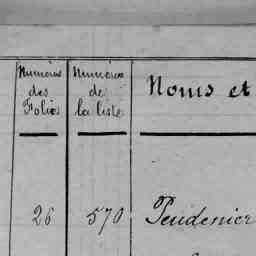 Numéros des Folios
Numéros de la liste
Noms et
26 570 Peudenier